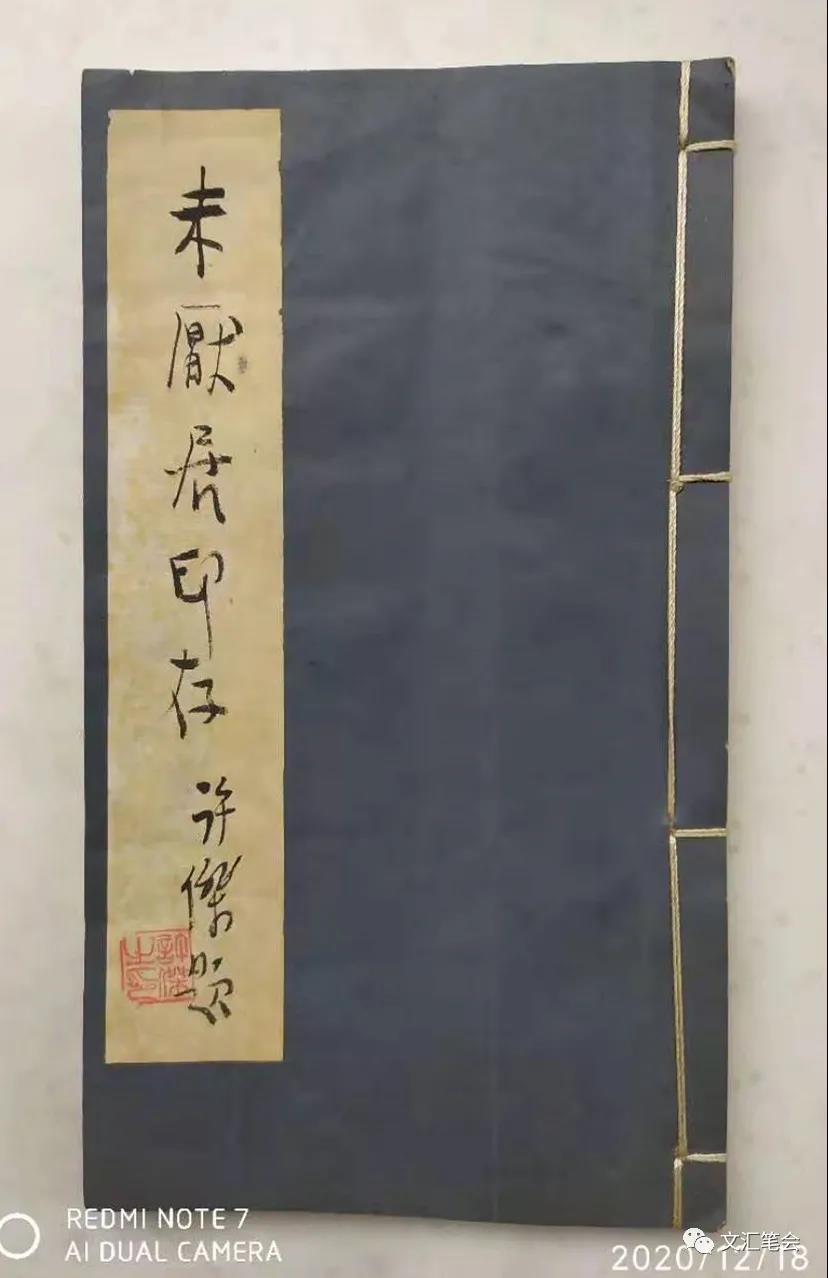 未厭居印存
许傑題
許傑之印
REDMI NOTE 7
AI DUAL CAMERA
文汇笔会
2020/12/18